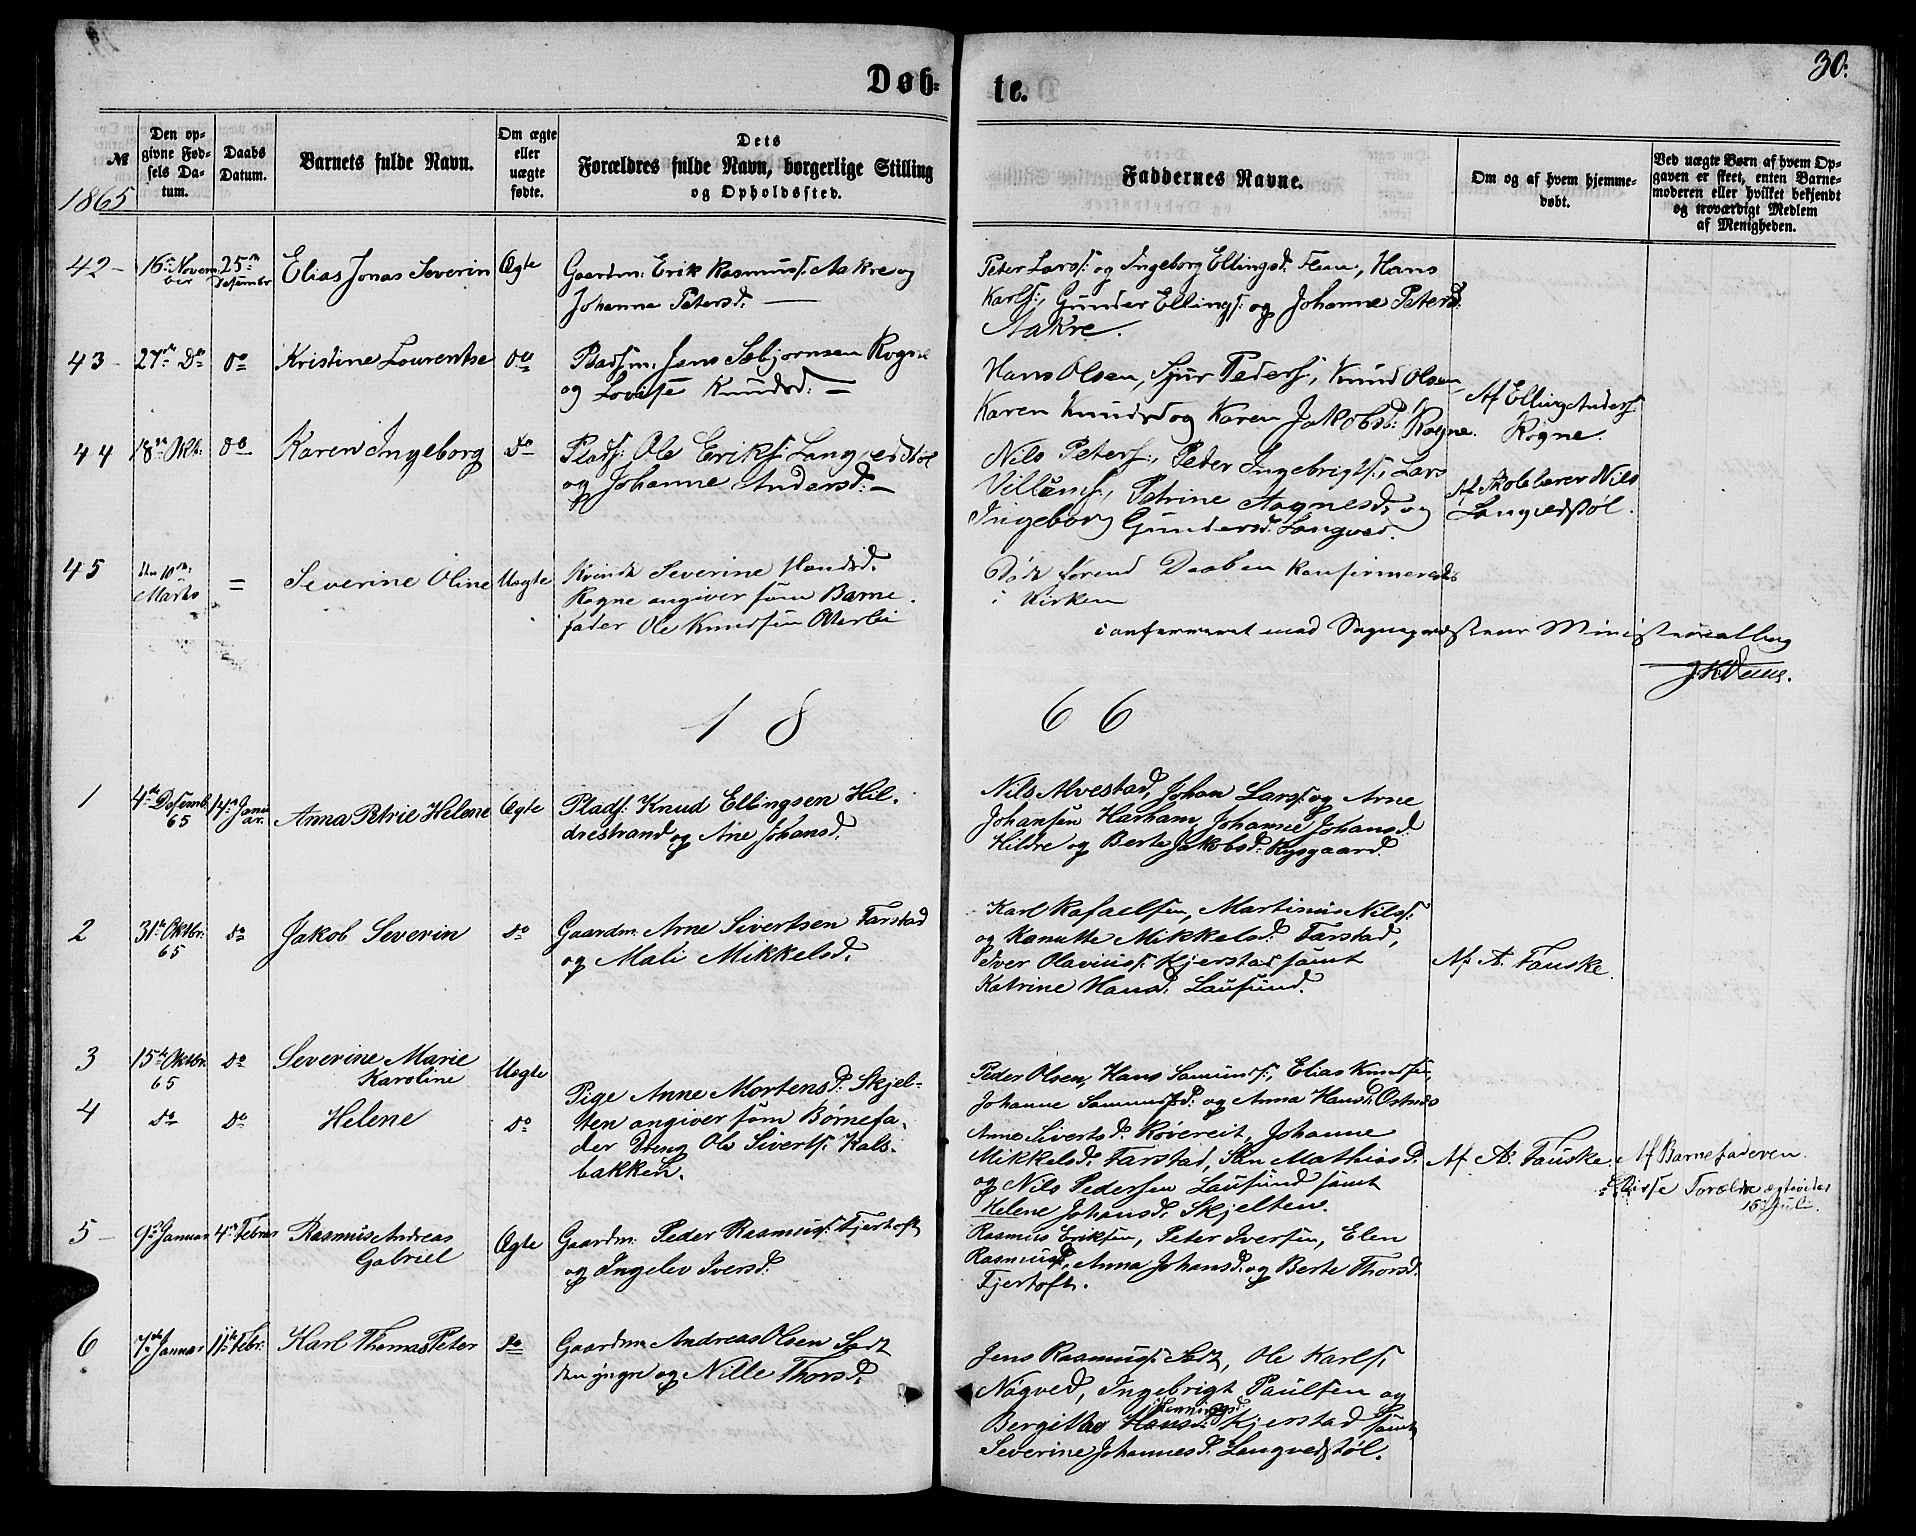 30.
Døb=
te.
№
Den op=
givne Fød=
sels Da=
tum.
Daabs
Datum.
Barnets fulde Navn.
Om ægte
eller
uægte
fødte.
Dets
Forældres fulde Navn, borgerlige Stilling
og Opholdssted.
Faddernes Navne.
Om og af hvem hjemme=
døbt.
Ved uægte Børn af hvem Op=
gaven er skeet, enten Barne=
moderen eller hvilket bekjendt
og troværdigt Medlem
af Menigheden.
1865
42 - 16de Novem
ber
25de
Desembr
Elias Jonas Severin
Ægte
Gaardm: Erik Rasmuss: Aakre og
Johanna Petersd: —
Peter Larss: og Ingeborg Ellingsd: Flem, Hans
Karls:, Gunder Ellings: og Johanne Petersd:
Aakre.
43 - 27de Do
do
Kristine Lourentse
do
Pladsm: Jens Sæbjørnsen Rogne
og Lovise Knudsd: —
Hans Olsen, Sjur Peders:, Knud Olsen
Karen Knudsd og Karen Jakobsd: Rogne.
Af Elling Anders:
Rogne.
44 18de Okt:
do
Karen Ingeborg
do
Plads: Ole Eriks: Langvedstøl
og Johanne Andersd: —
Nils Peters:, Peder Ingebrigts:, Lars
Villums:, Petrine Aagnesd: og
Ingeborg Gundersd: Langved.
Af Skolelærer Nils
Langvedstøl.
45 den 10de
Marts
=
Severine Oline
Uægte
Kvinde Severine Hansd:
Rogne angiver som Barne
fader Ole Knudsen Otterlei
Død førend Daaben konfirmeredes
i Kirken
conformeret med Sognepræstens Ministerialbog
18
66
1 4de Desemb.
65
14de Janu
ar.
Anna Petrie Helene
Ægte
Plads: Knud Ellingsen Hil=
drestrand og Ane Johansd:
Nils Alvestad, Johan Larss: og Arne
Johansen Harham, Johanne Johansd:
Hildre og Berte Jakobsd: Rysgaard.
2 31te Oktbr:
65
do
Jakob Severin
do
Gaardm: Arne Sivertsen Farstad
og Mali Mikkelsd.
Karl Rafaelsen, Martinus Nils:
og Kanutte Mikkelsd: Farstad,
Iver Olavius: Kjerstad samt
Katrine Hansd: Lausund.
Af A. Fauske.
3 15de Oktbr.
65
do
Severine Marie
Karoline
Uægte
4 do
do
Helene
do
Pige Anne Mortensd: Skjel=
ten angiver som Børnefa=
der Dreng Ole Siverts: Hals=
bakken.
Peder Olsen, Hans Samunds:, Elias Knudsen,
Johanne Samundsd: og Anna Hansd: Østnes
Anne Sivertsd: Røvereit, Johanne
Mikkelsd: Farstad, Sten Mathiasd:
og Nils Pedersen Lausund samt
Helene Johansd: Skjelten.
Af A. Fauske.
Af Barnefaderen.
Disse Forældre ægteviet
15 Juli.
5 - 9de Januar
4de Februar
Rasmus Andreas
Gabriel
Ægte
Gaardm: Peder Rasmus: Fjertoft
og Ingelev Iversd:
Rasmus Eriksen, Peter Iversen, Elen
Rasmusd:, Anna Johansd: og Berte Thorsd:
Fjertoft.
6 7de Januar
11te Febr:
Karl Thomas Peter
do
Gaardm: Andreas Olsen Sæt
den yngre og Nille Thorsd:
Jens Rasmus: Sæt, Ole Karls:
Nøgved, Ingebrigt Paulsen og
Henningsd:
Bergitha Hansd: Kjerstad samt
Severine Johannesd: Langvedstøl.